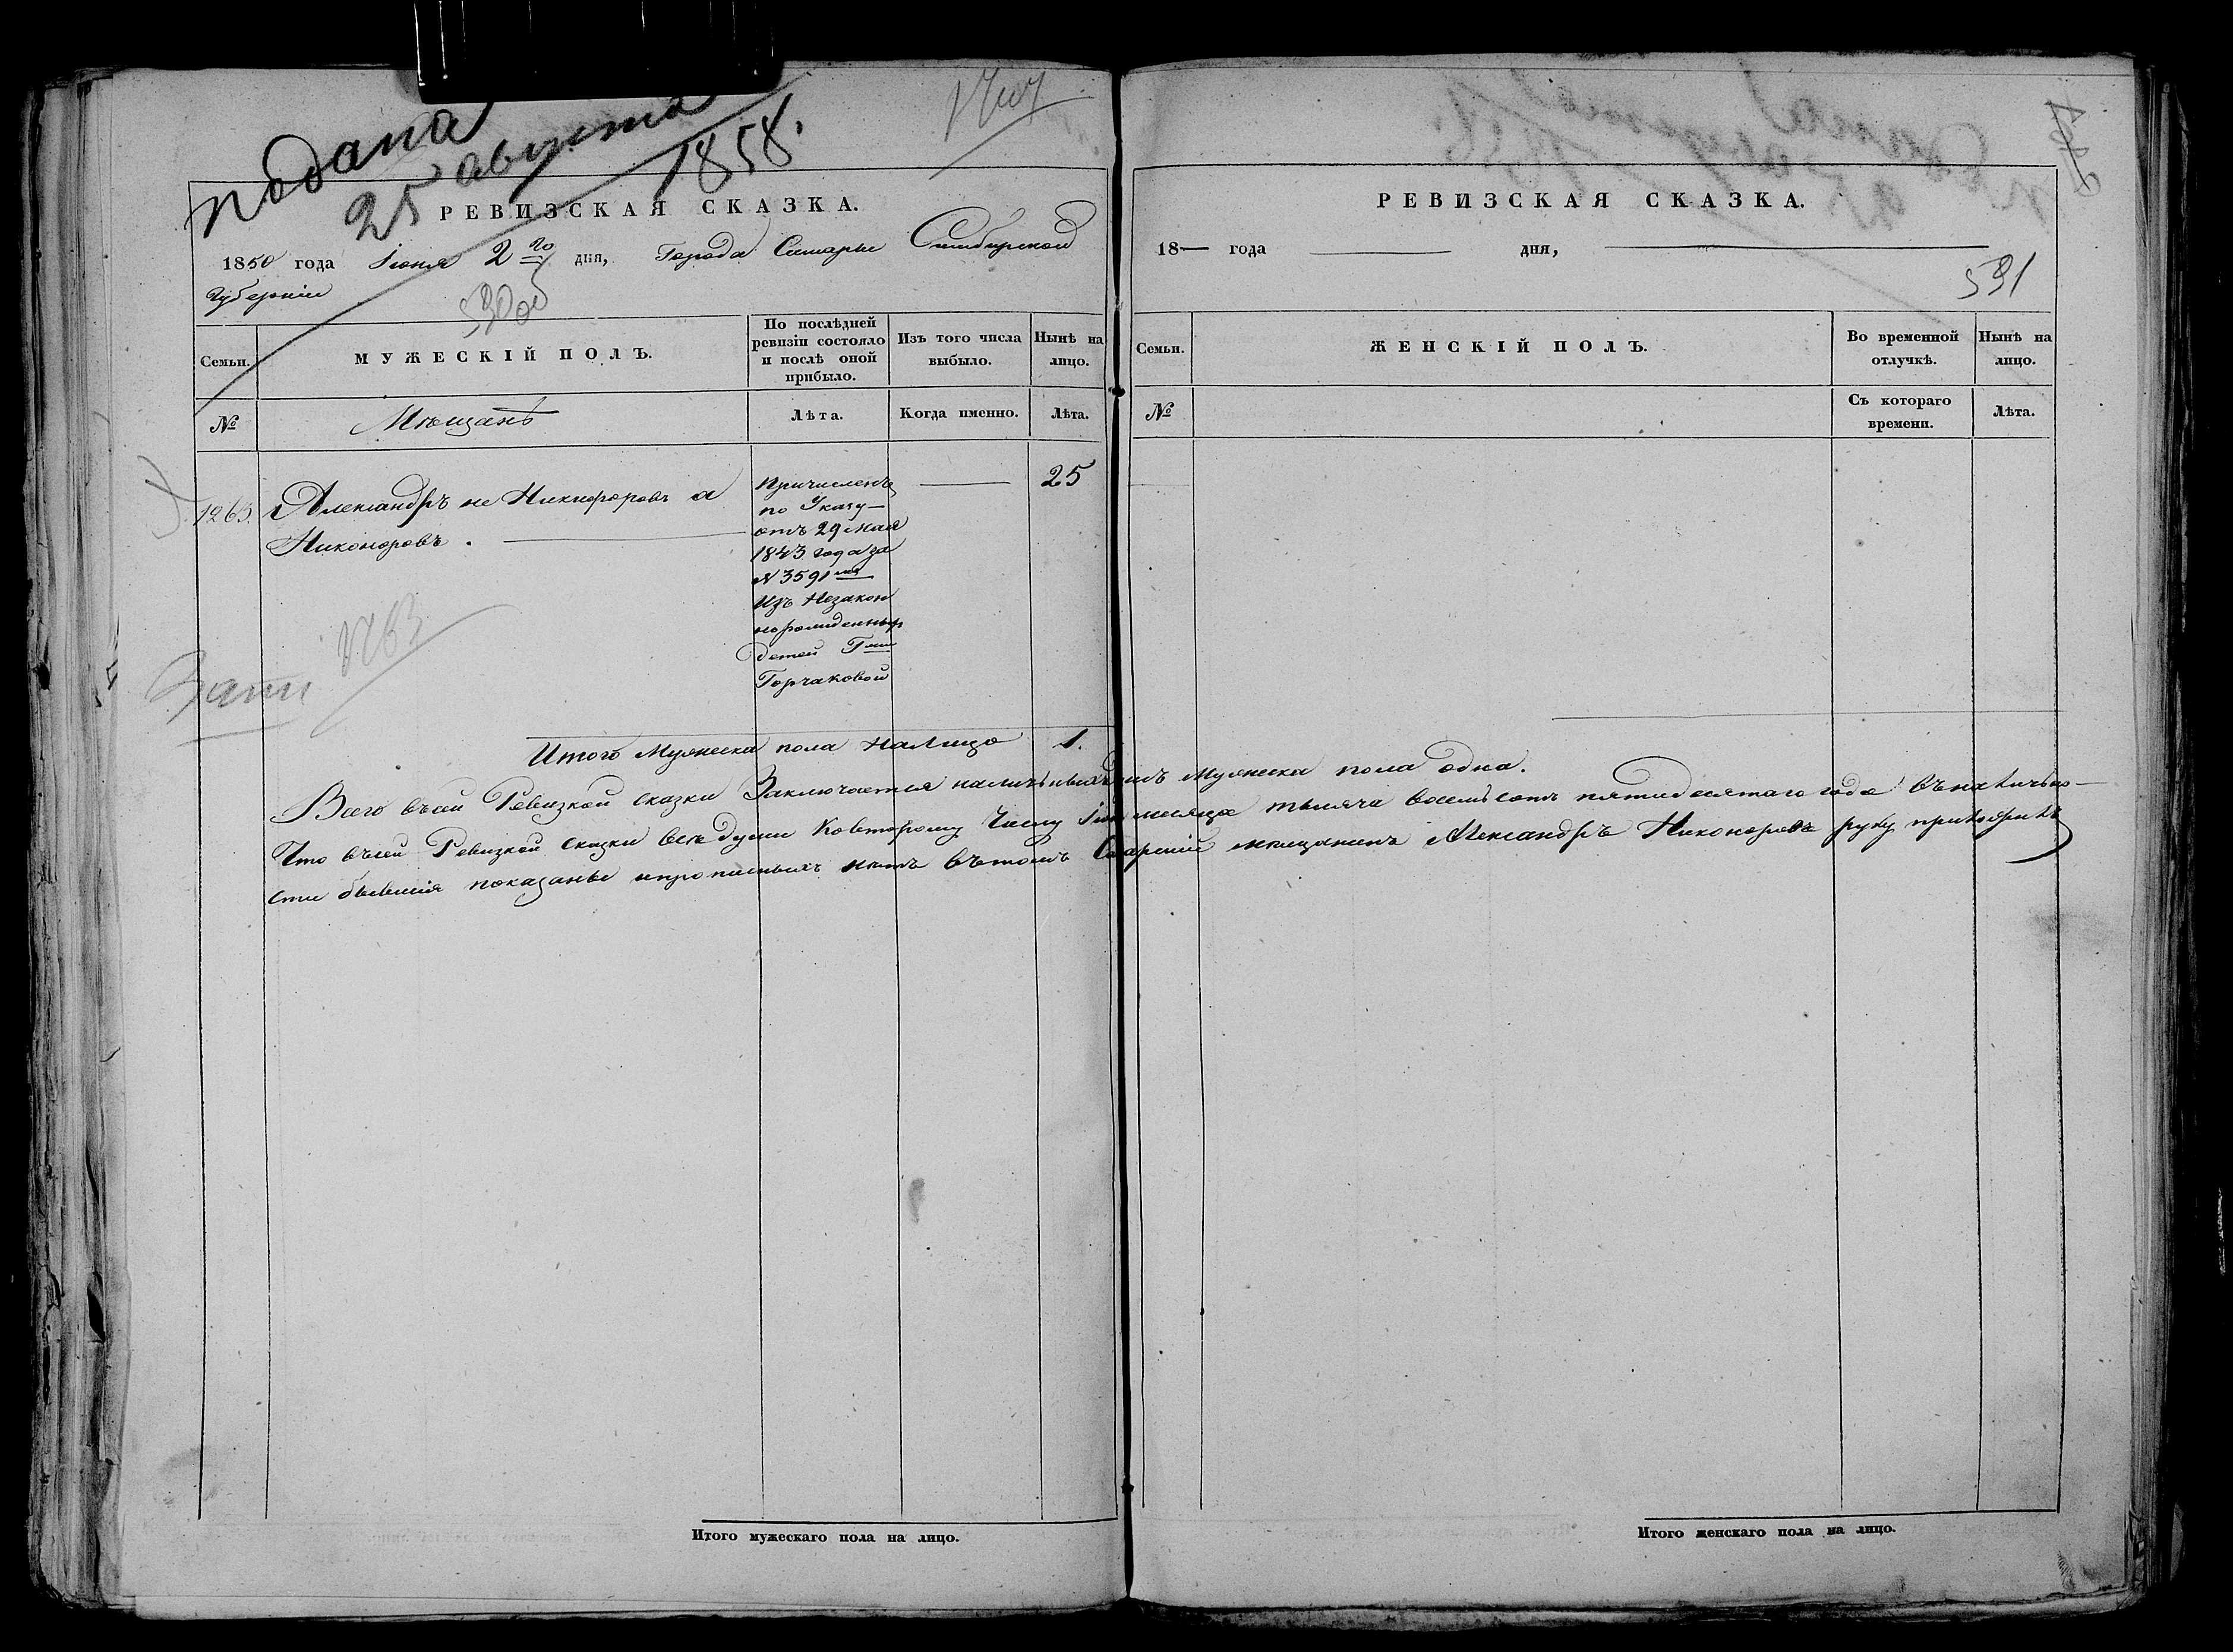 подана
25 августа
1858.
РЕВИЗСКАЯ СКАЗКА.
1850 года Іюня 2го дня, Города Самары Симбирской
Губерніи
530об
Семьи.
МУЖЕСКІЙ ПОЛЪ.
По послѣдней
ревизіи состояло
и послѣ оной
прибыло.
Изъ того числа
выбыло.
Нынѣ на
лицо.
№
Мѣщанъ
Лѣта.
Когда именно.
Лѣта.
1263.
Александръ не Никифоровъ а
Никоноровъ.
Причисленъ
по Указу
отъ 29 мая
1843 года за
№ 3591мъ
Изъ Незакон
норожденныхъ
детей Гжи
Горчаковой
25
Итого Мужеска пола налицо 1.
РЕВИЗСКАЯ СКАЗКА.
18— года дня,
531
Семьи.
ЖЕНСКІЙ ПОЛЪ.
Во временной
отлучкѣ.
Нынѣ на
лицо.
№
Съ котораго
времени.
Лѣта.
Всего въсей Ревизкой сказки Заключается наличныхъ Мужеска пола одна.
Что въсей Ревизкой сказки всѣ души Ковторому Числу месяца тысяча восемьсотъ пятидесятаго года въналичьно-
сти бывшія показаны ипрописныхъ нѣтъ вътомъ Самарскій мещанинъ Александръ Никоноровъ руку приложилъ
Итого мужескаго пола на лицо.
Итого женскаго пола на лицо.